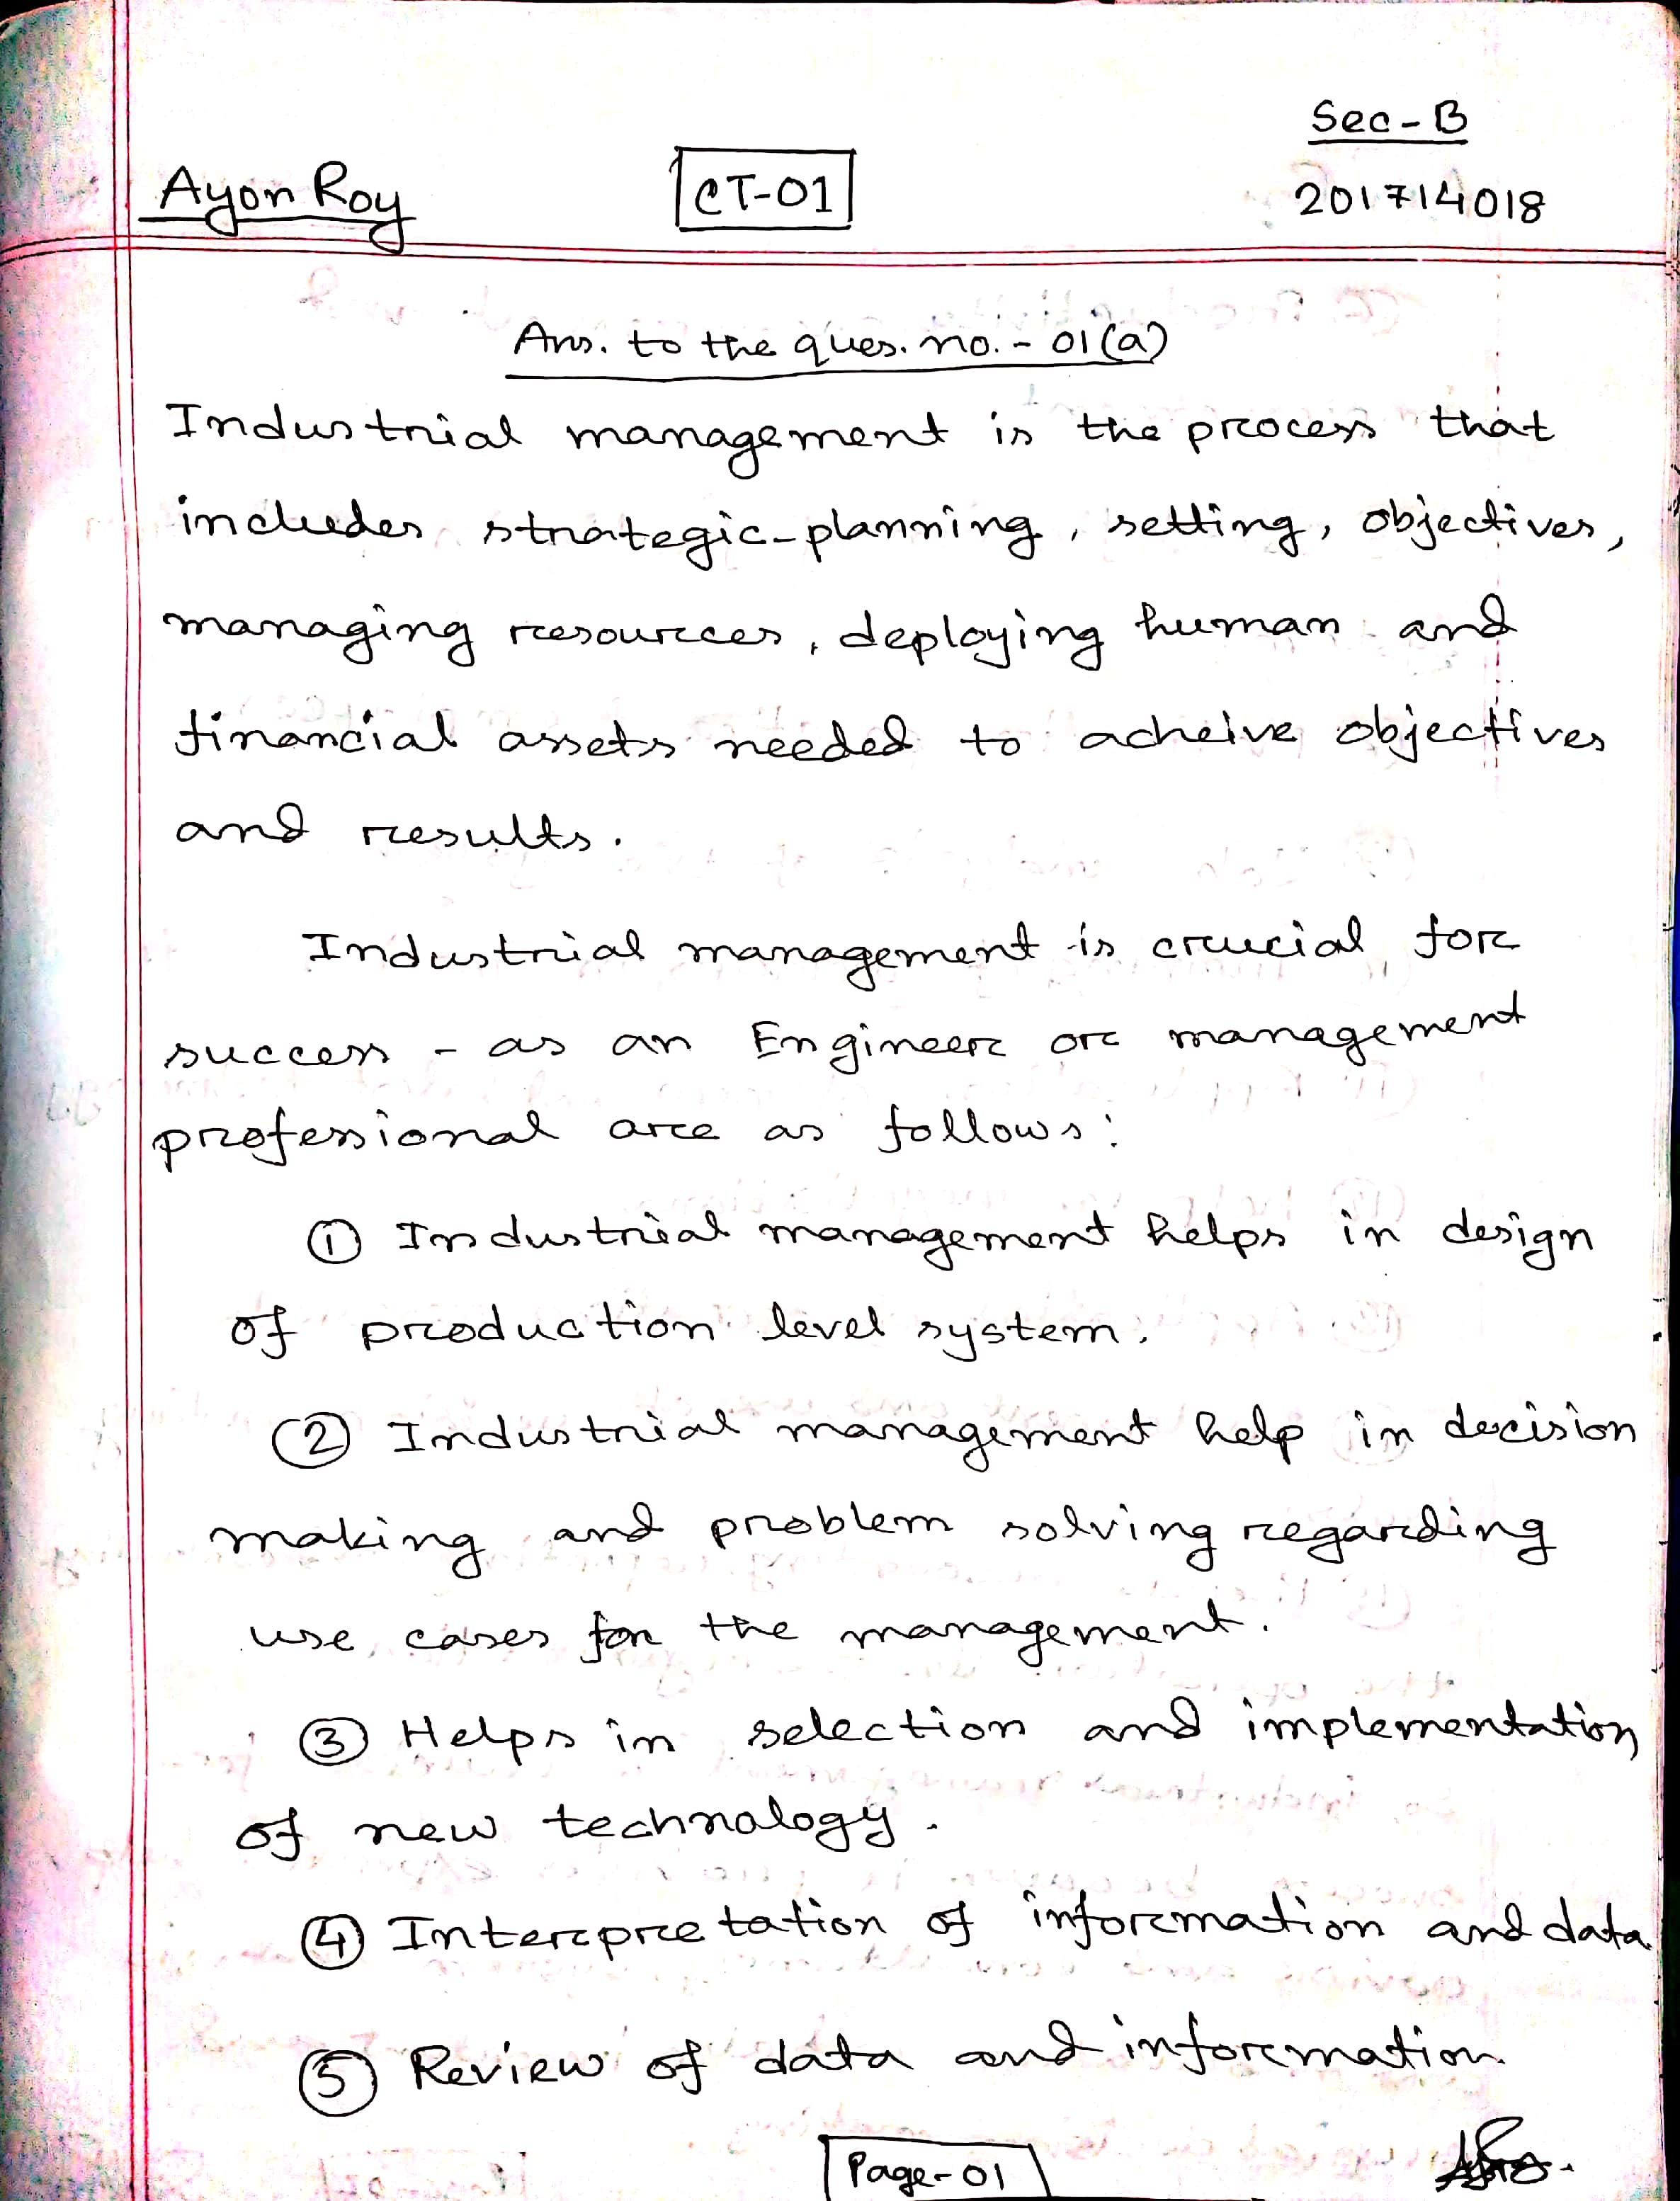 Sec-B
Ayon Roy
CT-01
201714018
Ans. to the ques. no. - 01(a)
Industrial management is the process that
includes strategic-planning, setting, objectives,
managing resources, deploying human and
financial assets needed to acheive objectives
and results.
Industrial management is crucial for
success - as an Engineer or management
professional are as follows:
① Industrial management helps in design
of production level system.
② Industrial management help in decision
making and problem solving regarding
use cases for the management.
③ Helps in selection and implementation
of new technology.
④ Interpretation of information and data
⑤ Review of data and information.
Page-01